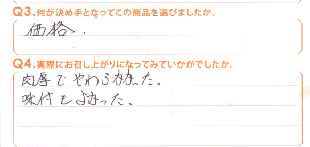 Q3.何が決め手となってこの商品を選びましたか。
価格.
Q4.実際にお召し上がりになってみていかがでしたか。
肉厚でやわらかかった、
味付もよかった、